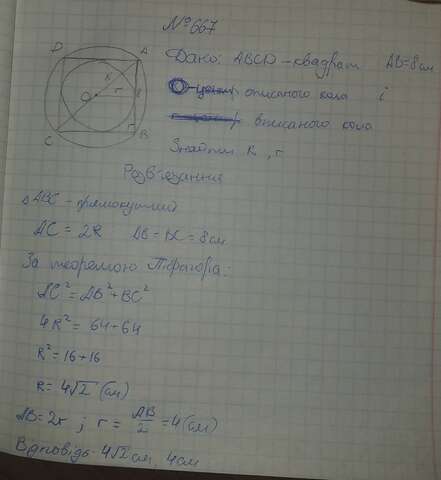 №667
D A
R
O r 8
r
C B
Дано: ABCD – квадрат AB=8см
описаного кола і
вписаного кола
Знайти R, r
Розв'язання
△ABC – прямокутний
AC = 2R AB = BC = 8см
За теоремою Піфагора:
AC² = AB² + BC²
4R² = 64+64
R² = 16+16
R = 4√2 (см)
AB = 2r ; r = AB/2 = 4 (см)
Відповідь 4√2 см, 4см